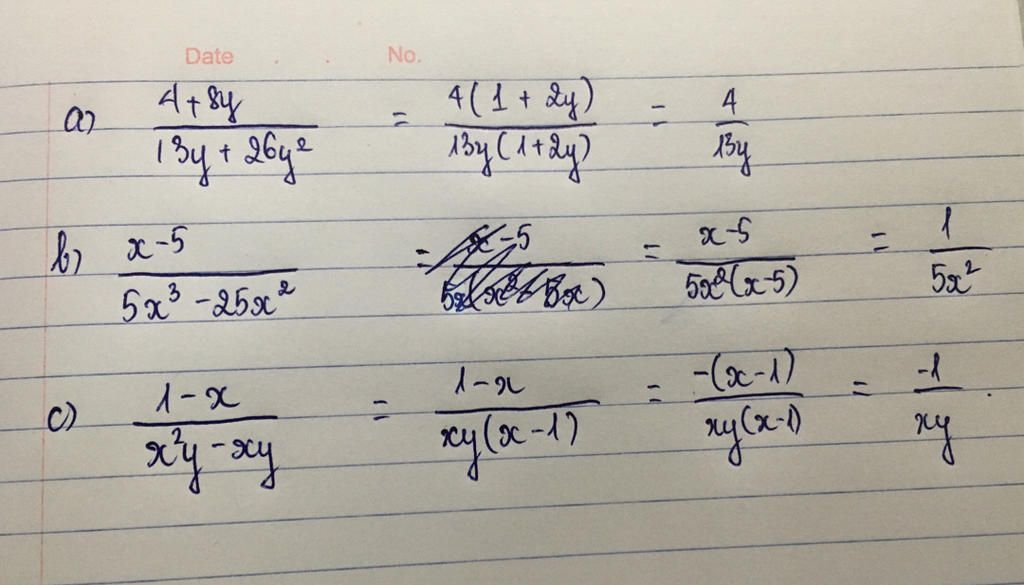 Date . . No.
a) (4+8y)/(13y + 26y²) = 4(1 + 2y)/(13y(1+2y)) = 4/(13y)
b) (x-5)/(5x³ - 25x²) = (x-5)/(5x(x² - 5x)) = (x-5)/(5x²(x-5)) = 1/(5x²)
c) (1-x)/(x²y - xy) = (1-x)/(xy(x-1)) = -(x-1)/(xy(x-1)) = -1/(xy) .